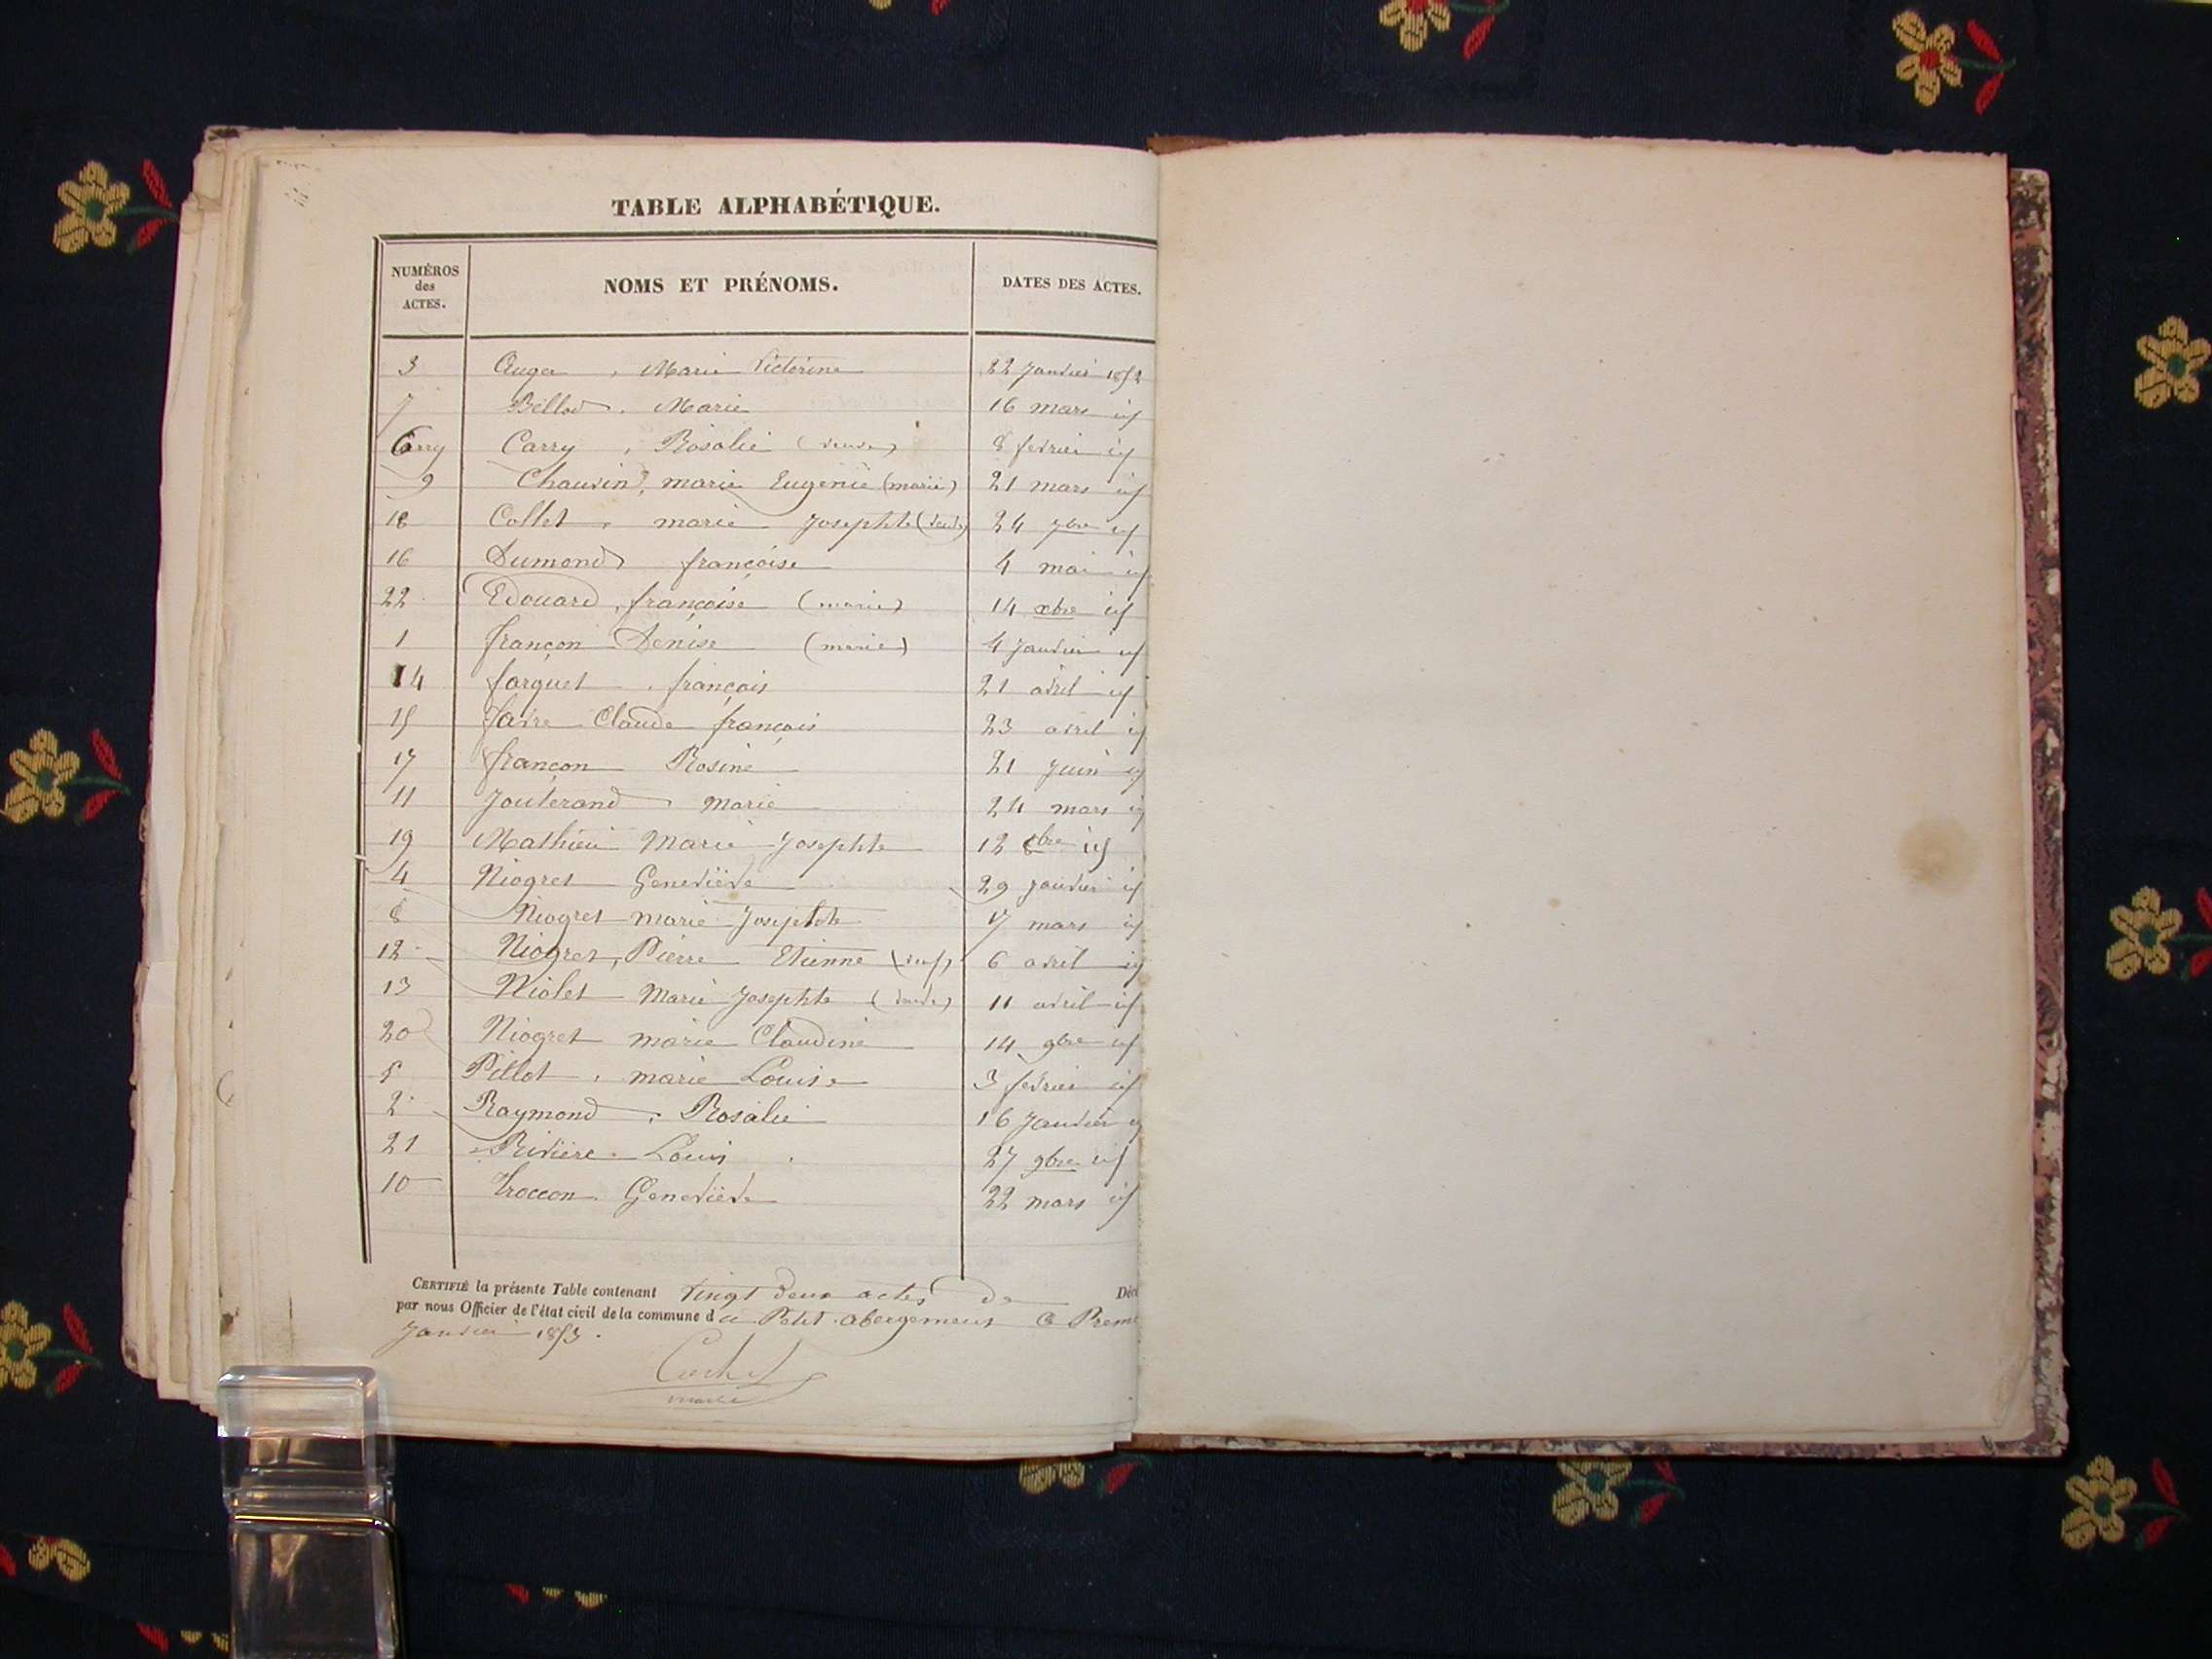 TABLE ALPHABÉTIQUE.
NUMÉROS des ACTES. NOMS ET PRÉNOMS. DATES DES ACTES.
3 Auger, Marie Victorine 22 Janvier 1852
7 Billod, Marie 16 mars id
6 Carry, Rosalie (veuve) 8 fevrier id
9 Chauvin, marie Eugenie (marié) 21 mars id
18 Collet, marie Josephte (veuve) 24 7bre id
16 Dumond françoise 4 mai id
22 Edouard, françoise (marié) 14 xbre id
1 françon Denise (marié) 4 Janvier id
14 farguet, françois 21 avril id
15 favre Claude françois 23 avril id
17 françon Rosine 21 Juin id
11 Jouterand marie 24 mars id
19 Mathieu Marie Josephte 12 8bre id
4 Niogret Geneviève 29 Janvier id
8 Niogret marie Josephte 17 mars id
12 Niogret, Pierre Etienne (veuf) 6 avril id
13 Niolet Marie Josephte (veuve) 11 avril id
20 Niogret marie Claudine 14 9bre id
5 Pillot, marie Louise 3 fevrier id
2 Raymond, Rosalie 16 Janvier id
21 Rivière Louis 27 9bre id
10 Troccon Geneviève 22 mars id
CERTIFIÉ la présente Table contenant vingt deux actes de Déc
par nous Officier de l'état civil de la commune du Petit abergement ce Prem
Janvier 1853.
maire